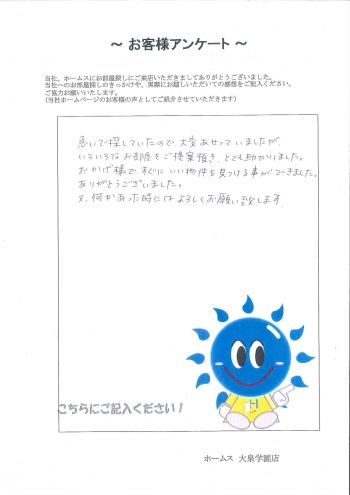 ～ お客様アンケート ～
当社、ホームスにお部屋探しにご来店いただきましてありがとうございました。
当社へのお部屋探しのきっかけや、実際にお越しいただいての感想をご記入ください。
ご協力お願いいたします。
(当社ホームページのお客様の声としてご紹介させていただきます)
急いで探していたので大変あせっていましたが
いろいろなお部屋をご提案頂き、とても助かりました。
おかげ様ですぐにいい物件を見つける事ができました。
ありがとうございました。
又、何かあった時にはよろしくお願い致します。
H
こちらにご記入ください！
ホームス 大泉学園店